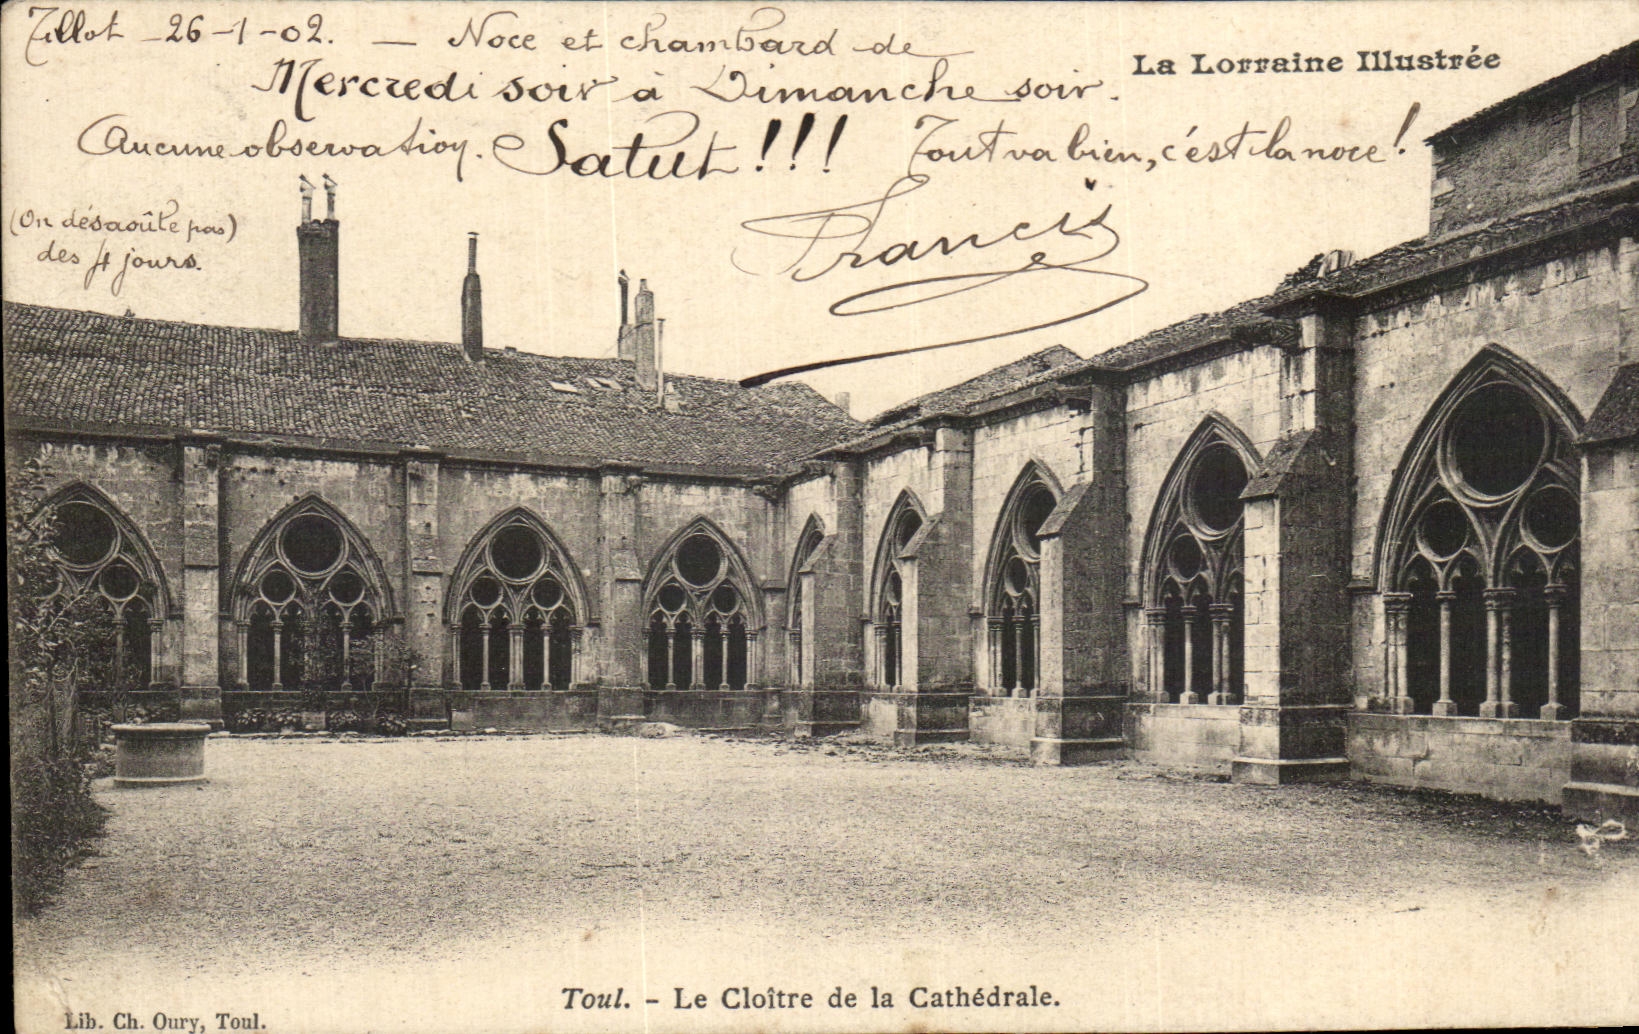 Tillot - 26 - 1 - 02. — Noce et chambard de
Mercredi soir à Dimanche soir.
Aucune observation. Salut!!! Tout va bien, c'est la noce!
Francis
(On désaoûle pas)
des 4 jours.
La Lorraine Illustrée
Toul. - Le Cloître de la Cathédrale.
Lib. Ch. Oury, Toul.